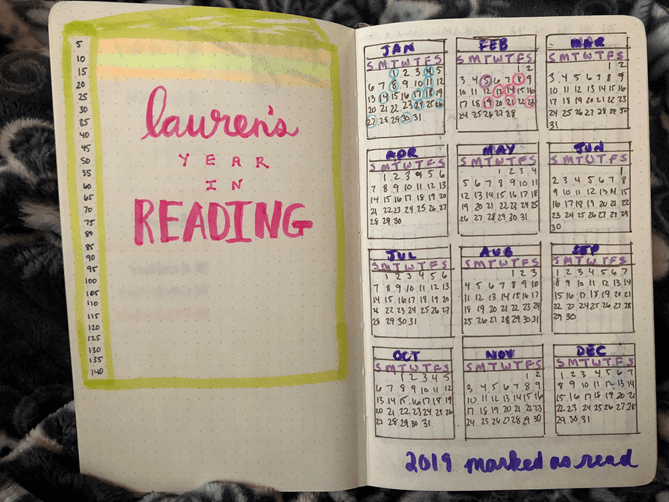 5
10
15
20
25
30
35
40
45
50
55
60
65
70
75
80
85
90
95
100
105
110
115
120
125
130
135
140
lauren's
YEAR
IN
READING
JAN
S M T W T F S
1 2 3 4 5
6 7 8 9 10 11 12
13 14 15 16 17 18 19
20 21 22 23 24 25 26
27 28 29 30 31
FEB
S M T W T F S
1 2
3 4 5 6 7 8 9
10 11 12 13 14 15 16
17 18 19 20 21 22 23
24 25 26 27 28
MAR
S M T W T F S
1 2
3 4 5 6 7 8 9
10 11 12 13 14 15 16
17 18 19 20 21 22 23
24 25 26 27 28 29 30
31
APR
S M T W T F S
1 2 3 4 5 6
7 8 9 10 11 12 13
14 15 16 17 18 19 20
21 22 23 24 25 26 27
28 29 30
MAY
S M T W T F S
1 2 3 4
5 6 7 8 9 10 11
12 13 14 15 16 17 18
19 20 21 22 23 24 25
26 27 28 29 30 31
JUN
S M T W T F S
1
2 3 4 5 6 7 8
9 10 11 12 13 14 15
16 17 18 19 20 21 22
23 24 25 26 27 28 29
30
JUL
S M T W T F S
1 2 3 4 5 6
7 8 9 10 11 12 13
14 15 16 17 18 19 20
21 22 23 24 25 26 27
28 29 30 31
AUG
S M T W T F S
1 2 3
4 5 6 7 8 9 10
11 12 13 14 15 16 17
18 19 20 21 22 23 24
25 26 27 28 29 30 31
SEP
S M T W T F S
1 2 3 4 5 6 7
8 9 10 11 12 13 14
15 16 17 18 19 20 21
22 23 24 25 26 27 28
29 30
OCT
S M T W T F S
1 2 3 4 5
6 7 8 9 10 11 12
13 14 15 16 17 18 19
20 21 22 23 24 25 26
27 28 29 30 31
NOV
S M T W T F S
1 2
3 4 5 6 7 8 9
10 11 12 13 14 15 16
17 18 19 20 21 22 23
24 25 26 27 28 29 30
DEC
S M T W T F S
1 2 3 4 5 6 7
8 9 10 11 12 13 14
15 16 17 18 19 20 21
22 23 24 25 26 27 28
29 30 31
2019 marked as read